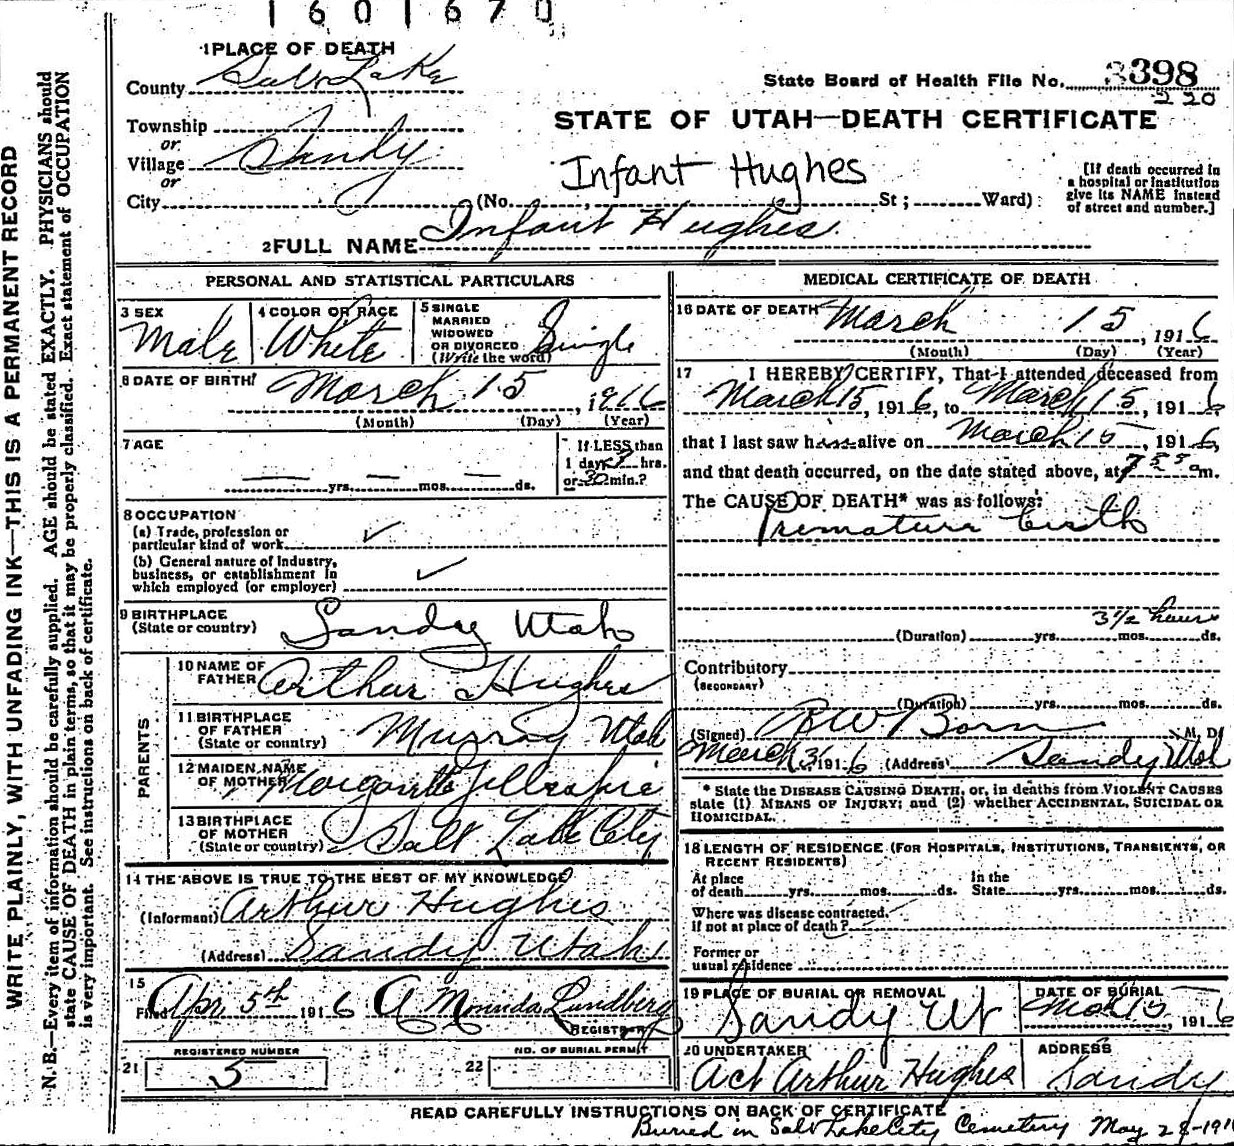 1601670
1 PLACE OF DEATH
County Salt Lake
State Board of Health File No. 3398
220
Township
or
Village Sandy
or
City
STATE OF UTAH—DEATH CERTIFICATE
Infant Hughes
(No. St; Ward)
[If death occurred in
a hospital or institution
give its NAME instead
of street and number.]
2 FULL NAME Infant Hughes
PERSONAL AND STATISTICAL PARTICULARS
3 SEX Male
4 COLOR OR RACE White
5 SINGLE
MARRIED
WIDOWED
OR DIVORCED
(Write the word) Single
6 DATE OF BIRTH March 15, 1916
(Month) (Day) (Year)
7 AGE
yrs. mos. ds.
If LESS than
1 day 3 hrs.
or 30 min.?
8 OCCUPATION
(a) Trade, profession or
particular kind of work
(b) General nature of Industry,
business, or establishment in
which employed (or employer)
9 BIRTHPLACE
(State or country) Sandy Utah
PARENTS
10 NAME OF
FATHER Arthur Hughes
11 BIRTHPLACE
OF FATHER
(State or country) Murray Utah
12 MAIDEN NAME
OF MOTHER Gillespie
13 BIRTHPLACE
OF MOTHER
(State or country) Salt Lake City
14 THE ABOVE IS TRUE TO THE BEST OF MY KNOWLEDGE
(Informant) Arthur Hughes
(Address) Sandy Utah
15
Filed Apr 5th 1916 A Lundberg
REGISTRAR
REGISTERED NUMBER
21 5
NO. OF BURIAL PERMIT
22
MEDICAL CERTIFICATE OF DEATH
16 DATE OF DEATH March 15, 1916
(Month) (Day) (Year)
17 I HEREBY CERTIFY, That I attended deceased from
March 15, 1916, to March 15, 1916
that I last saw him alive on March 15, 1916,
and that death occurred, on the date stated above, at 7 55 m.
The CAUSE OF DEATH* was as follows:
Premature birth
3 1/2 hours
(Duration) yrs. mos. ds.
Contributory
(SECONDARY)
(Duration) yrs. mos. ds.
(Signed) RW Born M. D.
March 31 1916 (Address) Sandy Utah
* State the DISEASE CAUSING DEATH, or, in deaths from VIOLENT CAUSES
state (1) MEANS OF INJURY; and (2) whether ACCIDENTAL, SUICIDAL OR
HOMICIDAL.
18 LENGTH OF RESIDENCE (FOR HOSPITALS, INSTITUTIONS, TRANSIENTS, OR
RECENT RESIDENTS)
At place
of death yrs. mos. ds.
In the
State yrs. mos. ds.
Where was disease contracted,
if not at place of death?
Former or
usual residence
19 PLACE OF BURIAL OR REMOVAL
Sandy Ut
DATE OF BURIAL
Mar 15, 1916
20 UNDERTAKER
Act Arthur Hughes
ADDRESS
Sandy
READ CAREFULLY INSTRUCTIONS ON BACK OF CERTIFICATE
Buried in Salt Lake City Cemetery May 28-191
WRITE PLAINLY, WITH UNFADING INK—THIS IS A PERMANENT RECORD
N. B.—Every item of information should be carefully supplied. AGE should be stated EXACTLY. PHYSICIANS should
state CAUSE OF DEATH in plain terms, so that it may be properly classified. Exact statement of OCCUPATION
is very important. See instructions on back of certificate.